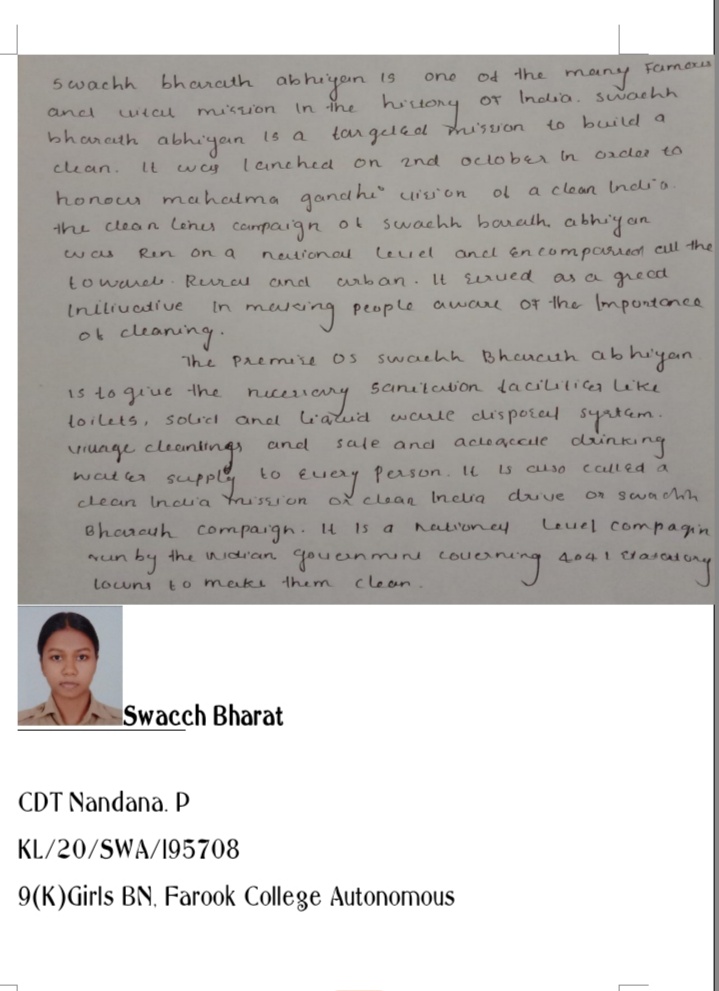 Swachh bharath abhiyan is one of the many Famous
and vital mission in the history of India. Swachh
bharath abhiyan is a targeted mission to build a
clean. It was lanched on 2nd october in order to
honour mahatma gandhi" vision of a clean India.
the clean lines campaign of swachh barath abhiyan
was Ren on a national level and encompassed all the
towards. Rural and urban. It served as a great
in making people aware of the Importance
of cleaning.
The Premise of swachh Bharath abhiyan
is to give the necessary sanitation facilities like
toilets, solid and liquid waste disposal system.
village cleanlings and safe and adequate drinking
water supply to every person. It is also called a
clean India mission or clean India drive or swachh
Bharath campaign. It is a national level compagin
run by the indian government coverning 4041 statutory
towns to make them clean.
Swacch Bharat
CDT Nandana. P
KL/20/SWA/195708
9(K)Girls BN, Farook College Autonomous